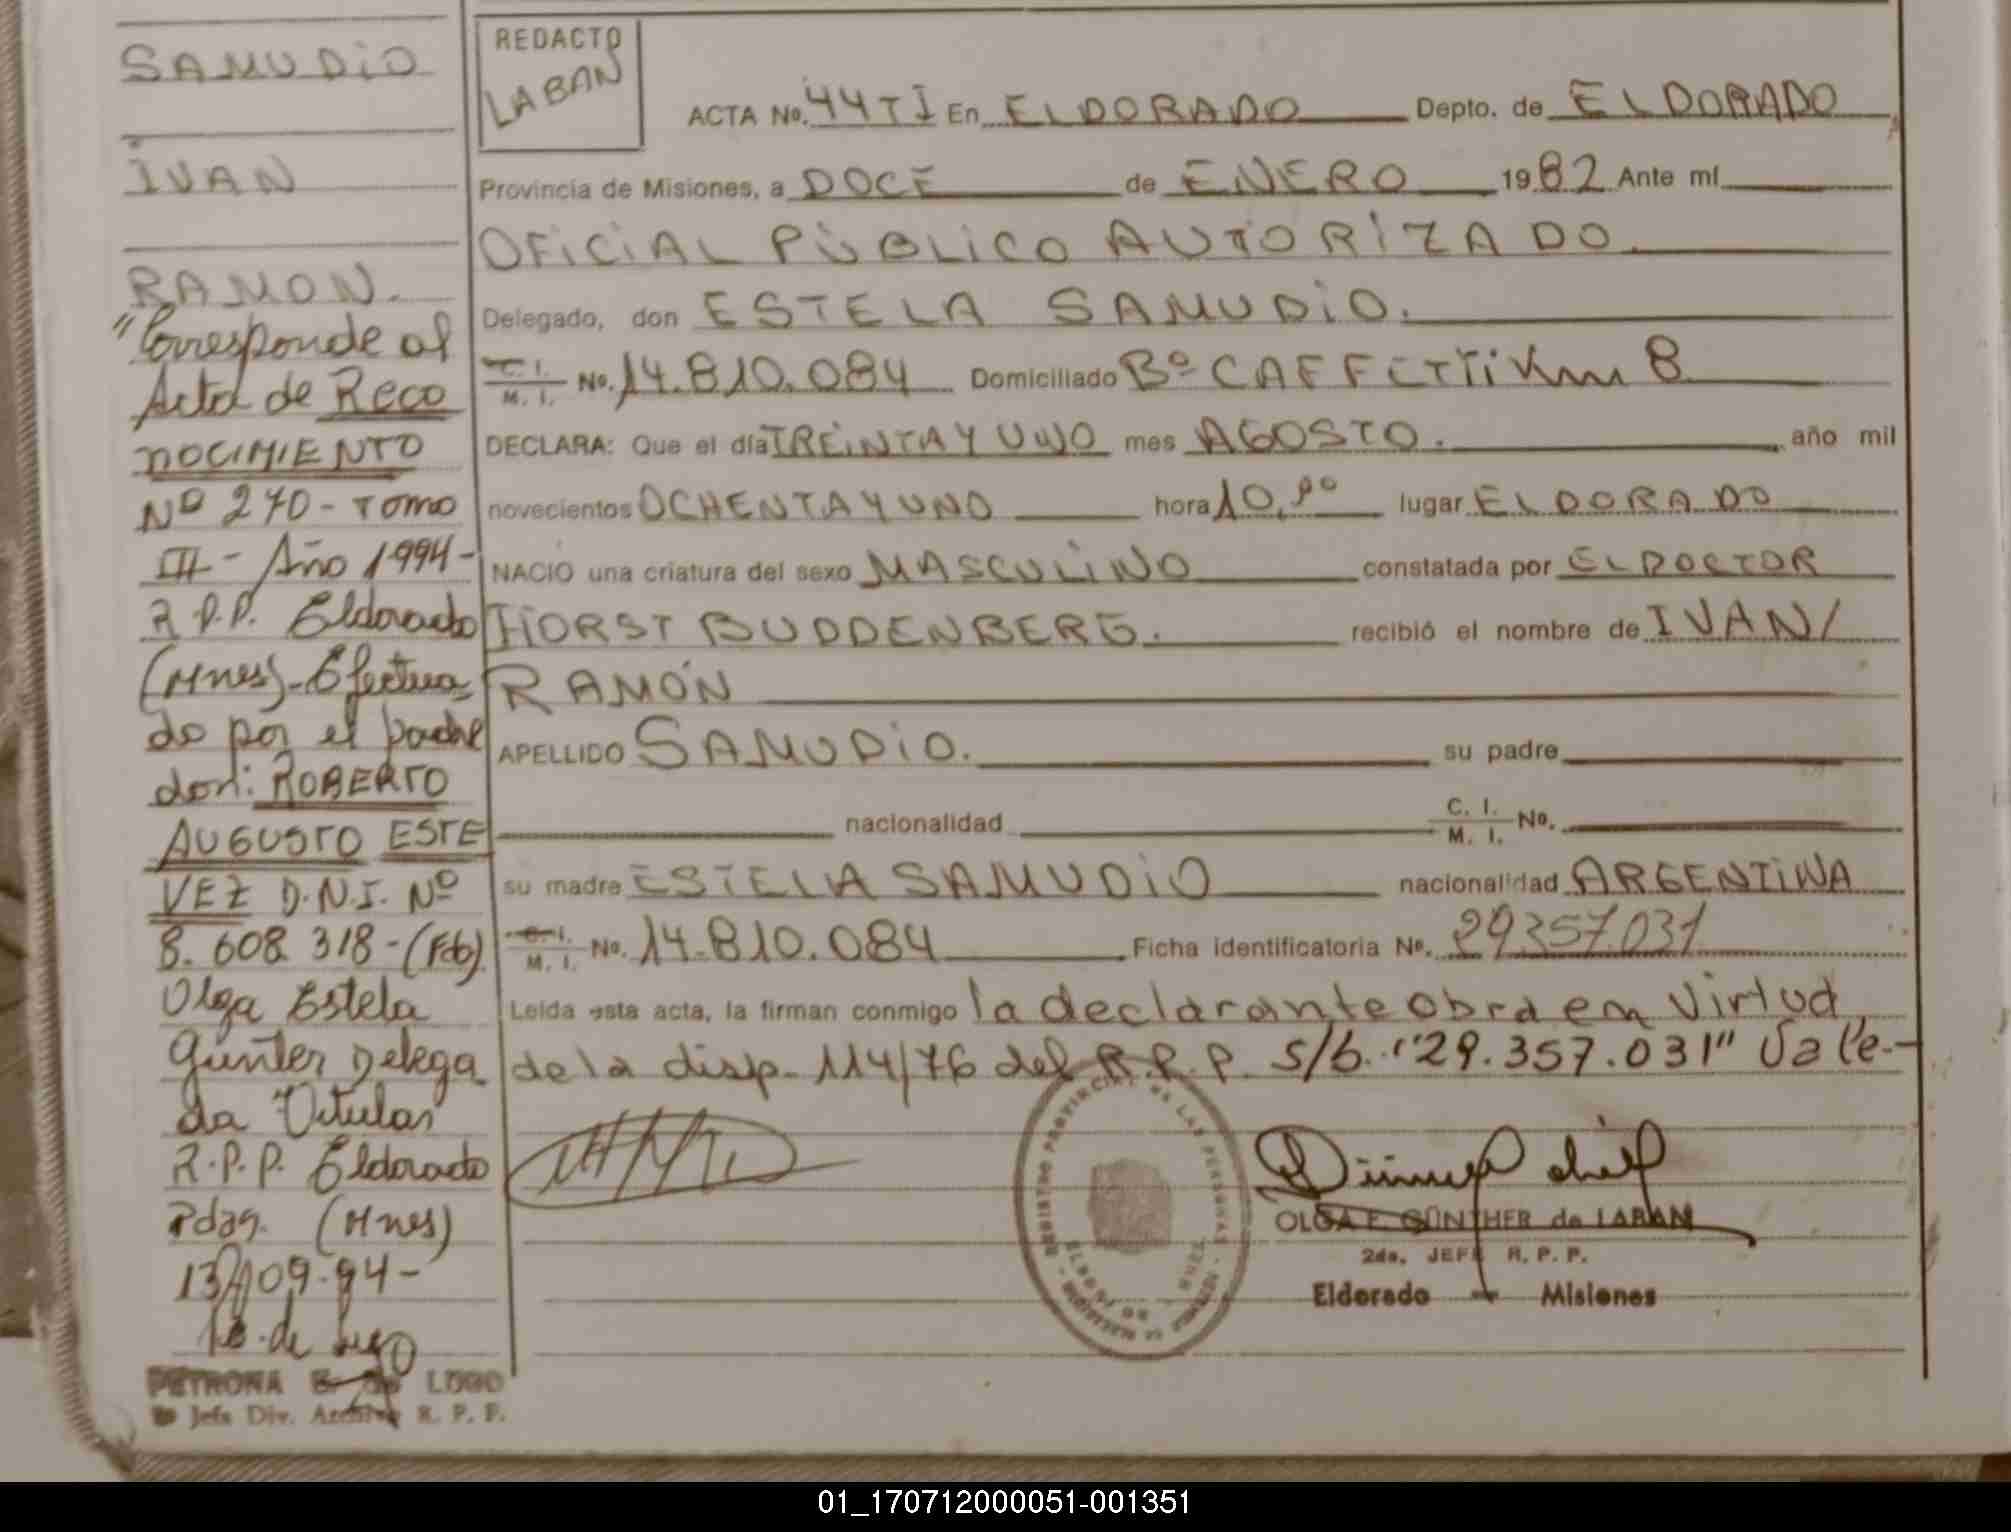 SAMUDIO
IVAN
RAMON.
"Corresponde al
Acta de Reco
NOCIMIENTO
Nº 270 - Tomo
III - Año 1994 -
R.P.P. Eldorado
(Mnes) - Efectua
do por el padre
don: ROBERTO
AUGUSTO ESTE
VEZ D.N.I. Nº
8.608.318 - (Fdo)
Olga Estela
Gunter Delega
da Titular
R.P.P. Eldorado
Pdas. (Mnes)
13/09-94-
PETRONA E. de LUGO
Jefe Div. Archivo R. P. P.
REDACTO
LABAN
ACTA No. 44TI En ELDORADO Depto. de ELDORADO
Provincia de Misiones, a DOCE de ENERO 1982 Ante mí
OFICIAL PÚBLICO AUTORIZADO
Delegado, don ESTELA SAMUDIO.
C. I.
M. I. No. 14.810.084 Domiciliado Bº CAFFETTI Km 8
DECLARA: Que el día TREINTA Y UNO mes AGOSTO. año mil
novecientos OCHENTA Y UNO hora 10,00 lugar ELDORADO
NACIO una criatura del sexo MASCULINO constatada por EL DOCTOR
HORST BUDDENBERG. recibió el nombre de IVAN/
RAMÓN
APELLIDO SAMUDIO. su padre
nacionalidad C. I.
M. I. No.
su madre ESTELA SAMUDIO nacionalidad ARGENTINA
C. I.
M. I. No. 14.810.084 Ficha identificatoria No. 29357.031
Leída esta acta, la firman conmigo la declarante obra en virtud
de la disp. 114/76 del R.P.P. s/b. "29.357.031" Vale.-
OLGA E. GÜNTHER de LABAN
2da. JEFE R. P. P.
Eldorado - Misiones
01_170712000051-001351